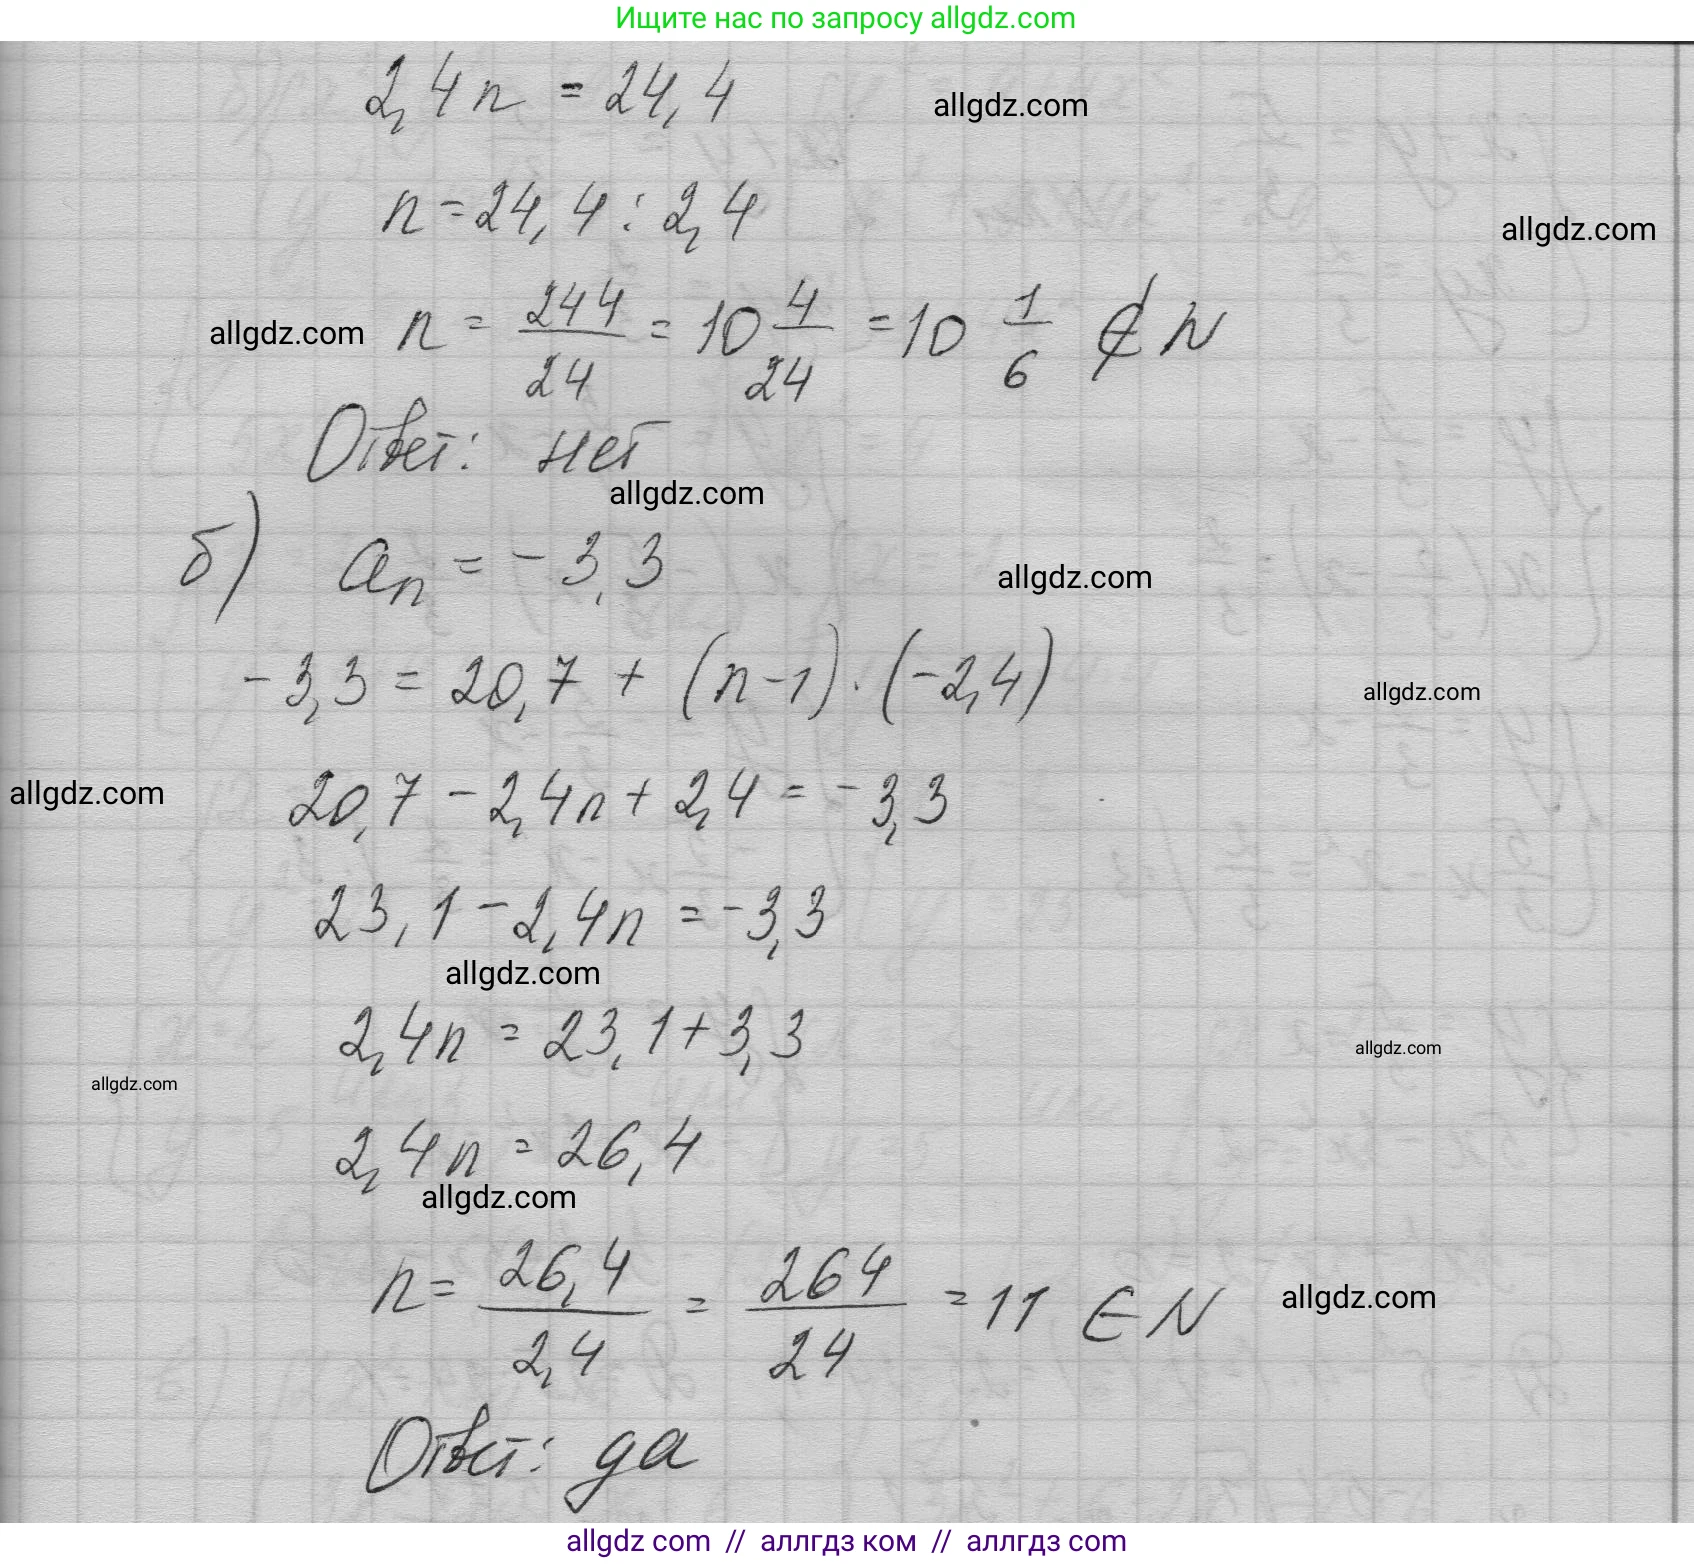 Ищите нас по запросу allgdz.com
2,4n = 24,4
allgdz.com
n = 24,4 : 2,4
allgdz.com
allgdz.com
n = 244/24 = 10 4/24 = 10 1/6 ∉ N
Ответ: нет
allgdz.com
б) aₙ = -3,3
allgdz.com
-3,3 = 20,7 + (n-1) · (-2,4)
allgdz.com
allgdz.com
20,7 - 2,4n + 2,4 = -3,3
23,1 - 2,4n = -3,3
allgdz.com
2,4n = 23,1 + 3,3
allgdz.com
allgdz.com
2,4n = 26,4
allgdz.com
n = 26,4/2,4 = 264/24 = 11 ∈ N
allgdz.com
Ответ: да
allgdz com // аллгдз ком // аллгдз com